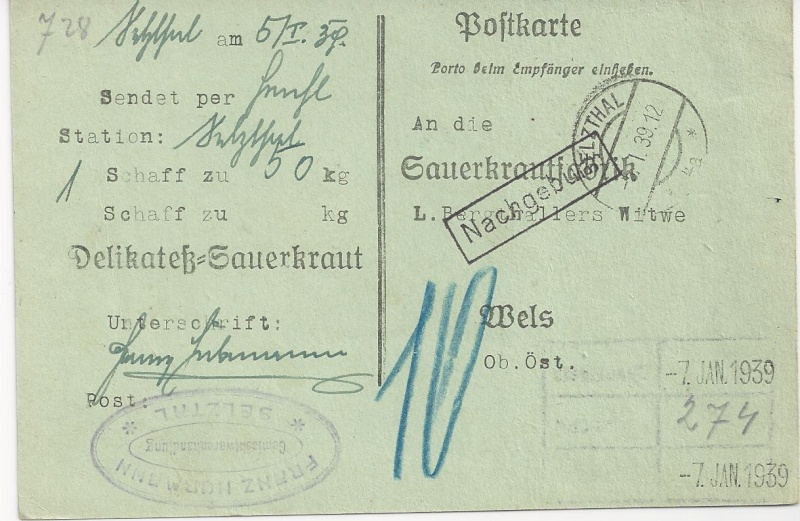 728 Selzthal am 5/I. 39.
Sendet per
Station: Selzthal
1 Schaff zu 50 kg
Schaff zu kg
Delikateß=Sauerkraut
Unterschrift:
Post:
FRANZ HORMANN
Gemischtwarenhandlung
* SELZTAL *
Postkarte
Porto beim Empfänger einheben.
SELZTHAL
1.39.12
* 4a
An die
Sauerkrautfabrik
Nachgebühr
L. Bergthallers Witwe
10
Wels
Ob.Öst.
-7. JAN. 1939
274
-7. JAN. 1939